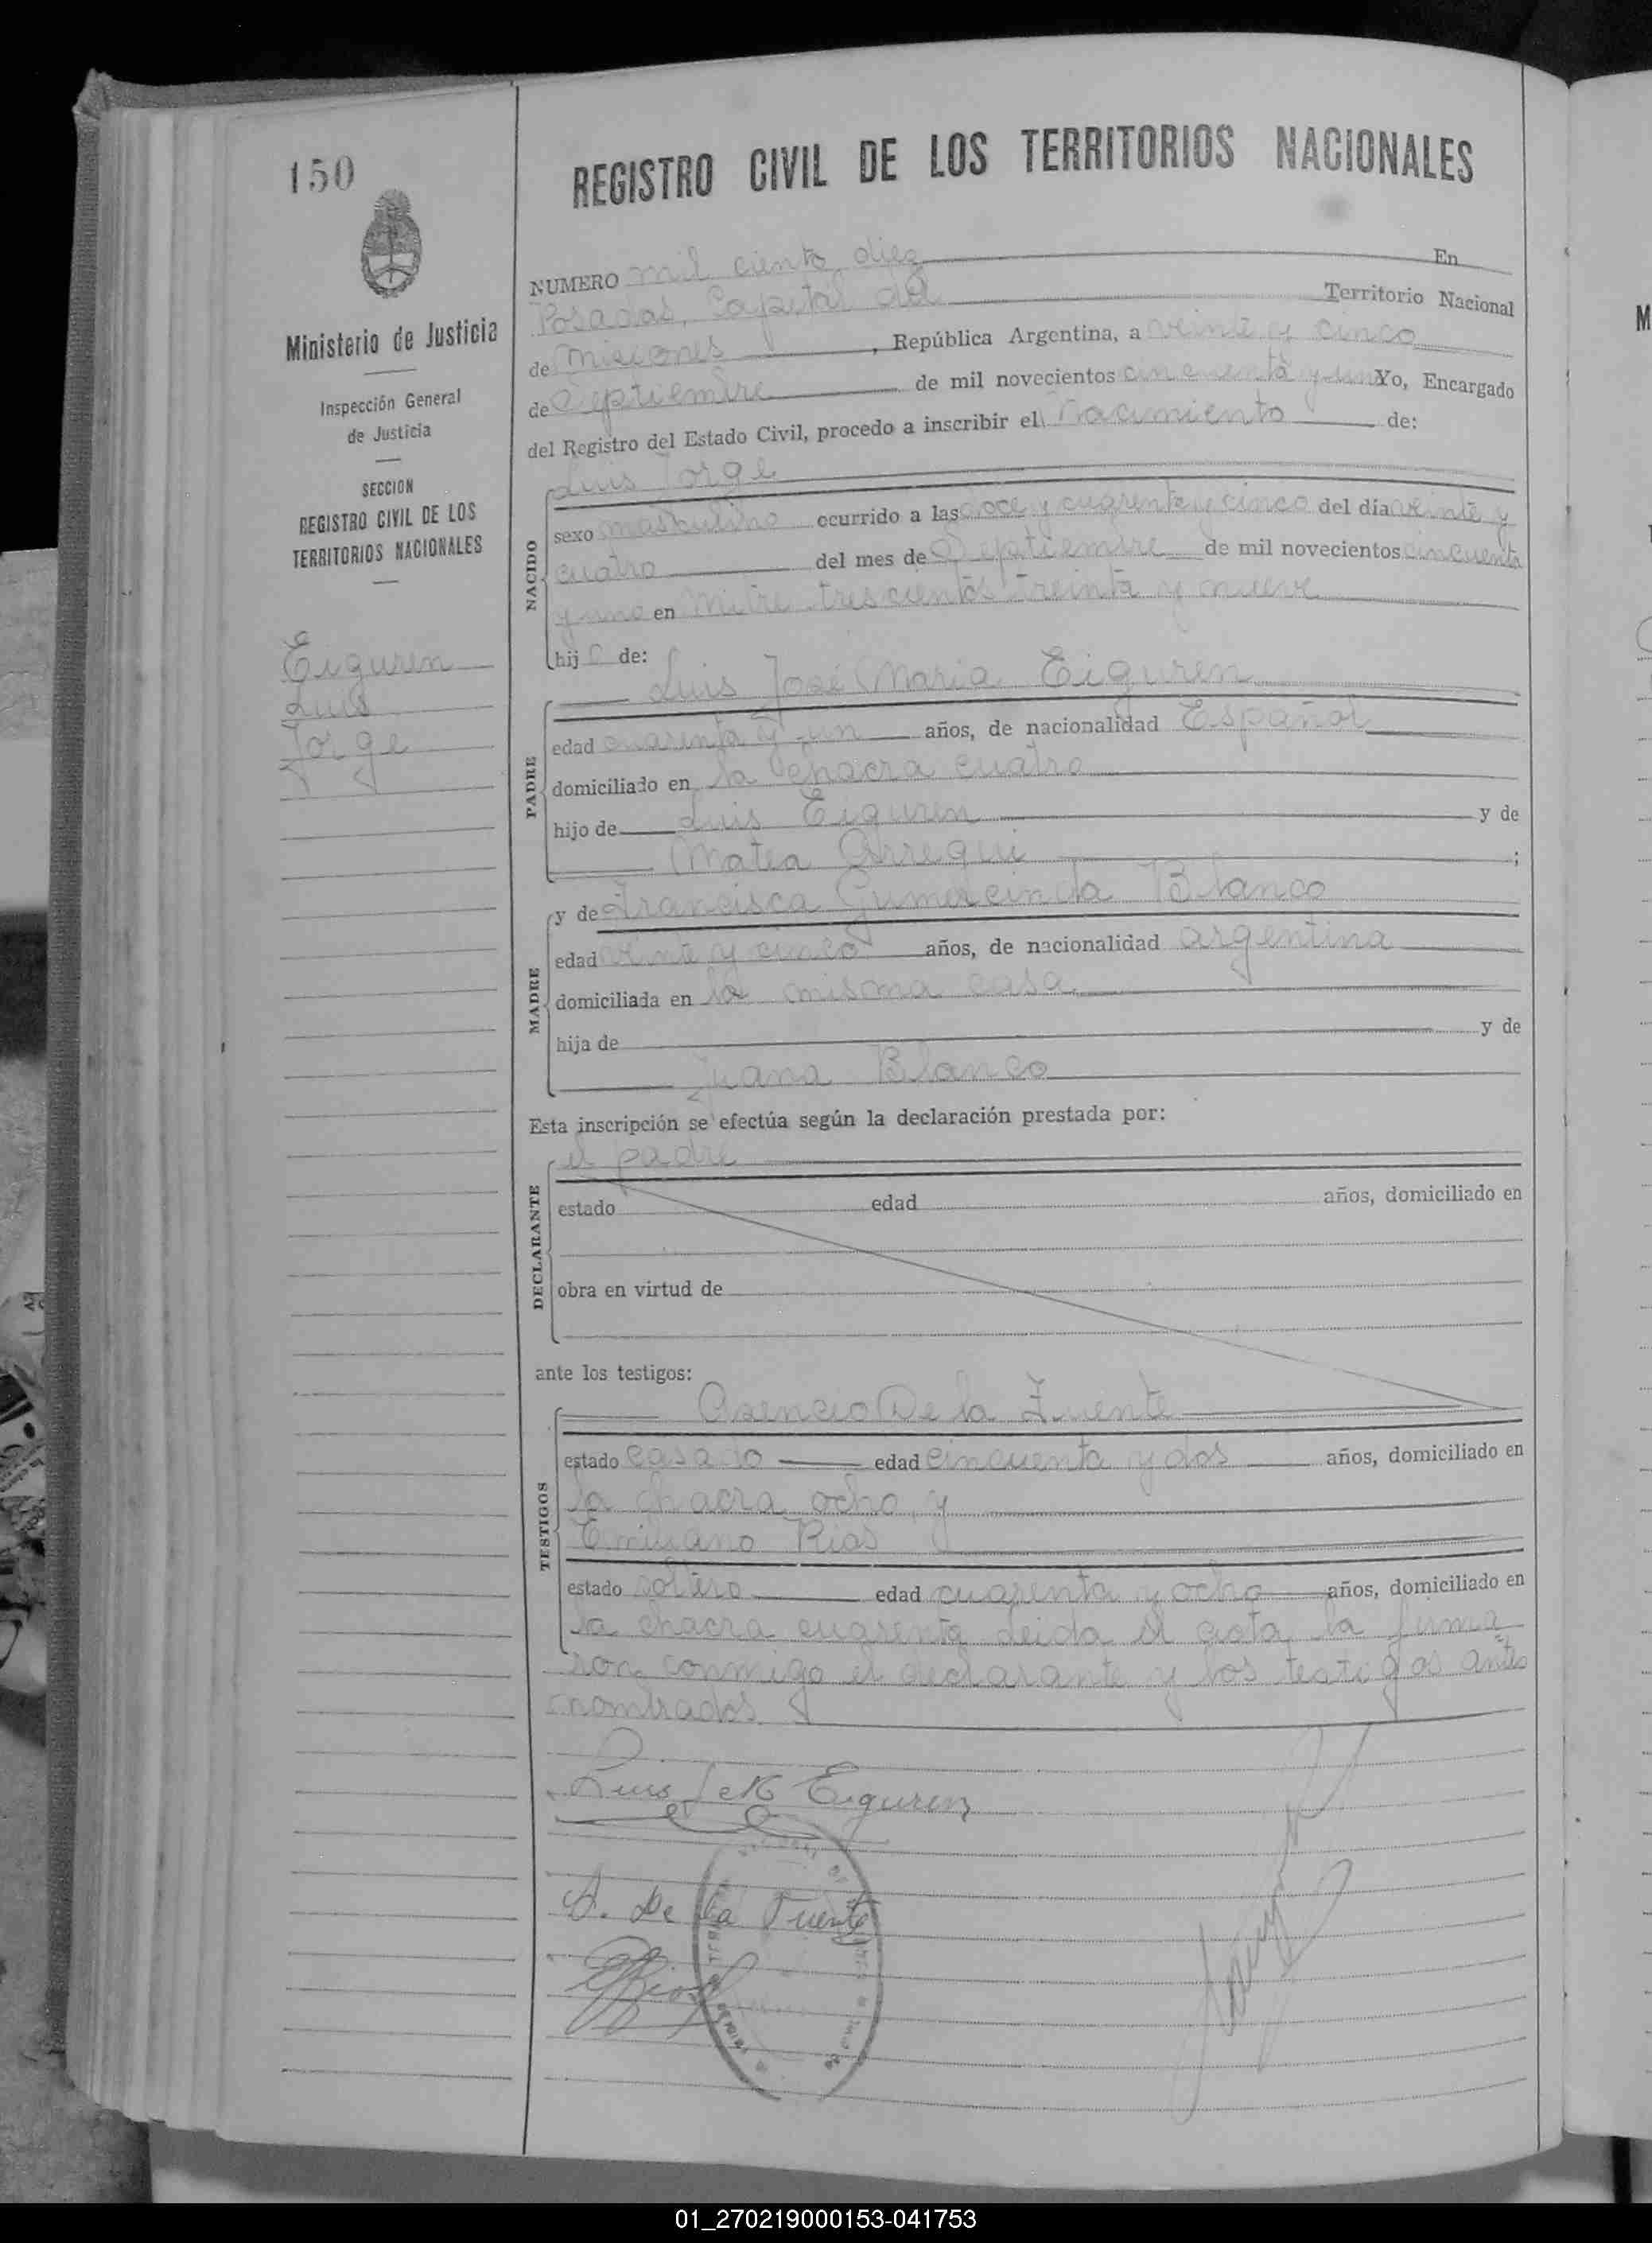 150
Ministerio de Justicia
Inspección General
de Justicia
SECCION
REGISTRO CIVIL DE LOS
TERRITORIOS NACIONALES
Eiguren
Luis
Jorge
REGISTRO CIVIL DE LOS TERRITORIOS NACIONALES
NUMERO mil ciento diez En
Posadas, Capital del Territorio Nacional
de Misiones, República Argentina, a veinte y cinco
de Septiembre de mil novecientos cincuenta y uno Yo, Encargado
del Registro del Estado Civil, procedo a inscribir el Nacimiento de:
Luis Jorge
NACIDO
sexo masculino ocurrido a las doce y cuarenta y cinco del día veinte y
cuatro del mes de Septiembre de mil novecientos cincuenta
y uno en Mitre trescientos treinta y nueve
hijo de:
Luis José Maria Eiguren
PADRE
edad cuarenta y un años, de nacionalidad Español
domiciliado en la chacra cuatro
hijo de Luis Eiguren y de
Matea Arregui ;
MADRE
y de Francisca Gumercinda Blanco
edad veinte y cinco años, de nacionalidad argentina
domiciliada en la misma casa
hija de y de
Juana Blanco
Esta inscripción se efectúa según la declaración prestada por:
DECLARANTE
el padre
estado edad años, domiciliado en
obra en virtud de
ante los testigos:
TESTIGOS
Asencio De la Fuente
estado casado edad cincuenta y dos años, domiciliado en
la chacra ocho, y
Emiliano Rios
estado soltero edad cuarenta y ocho años, domiciliado en
la chacra cuarenta Leida el acta, la firma
ron conmigo el declarante y los testigos antes
nombrados
Luis Eiguren
A. De la Fuente
ERios
01_270219000153-041753